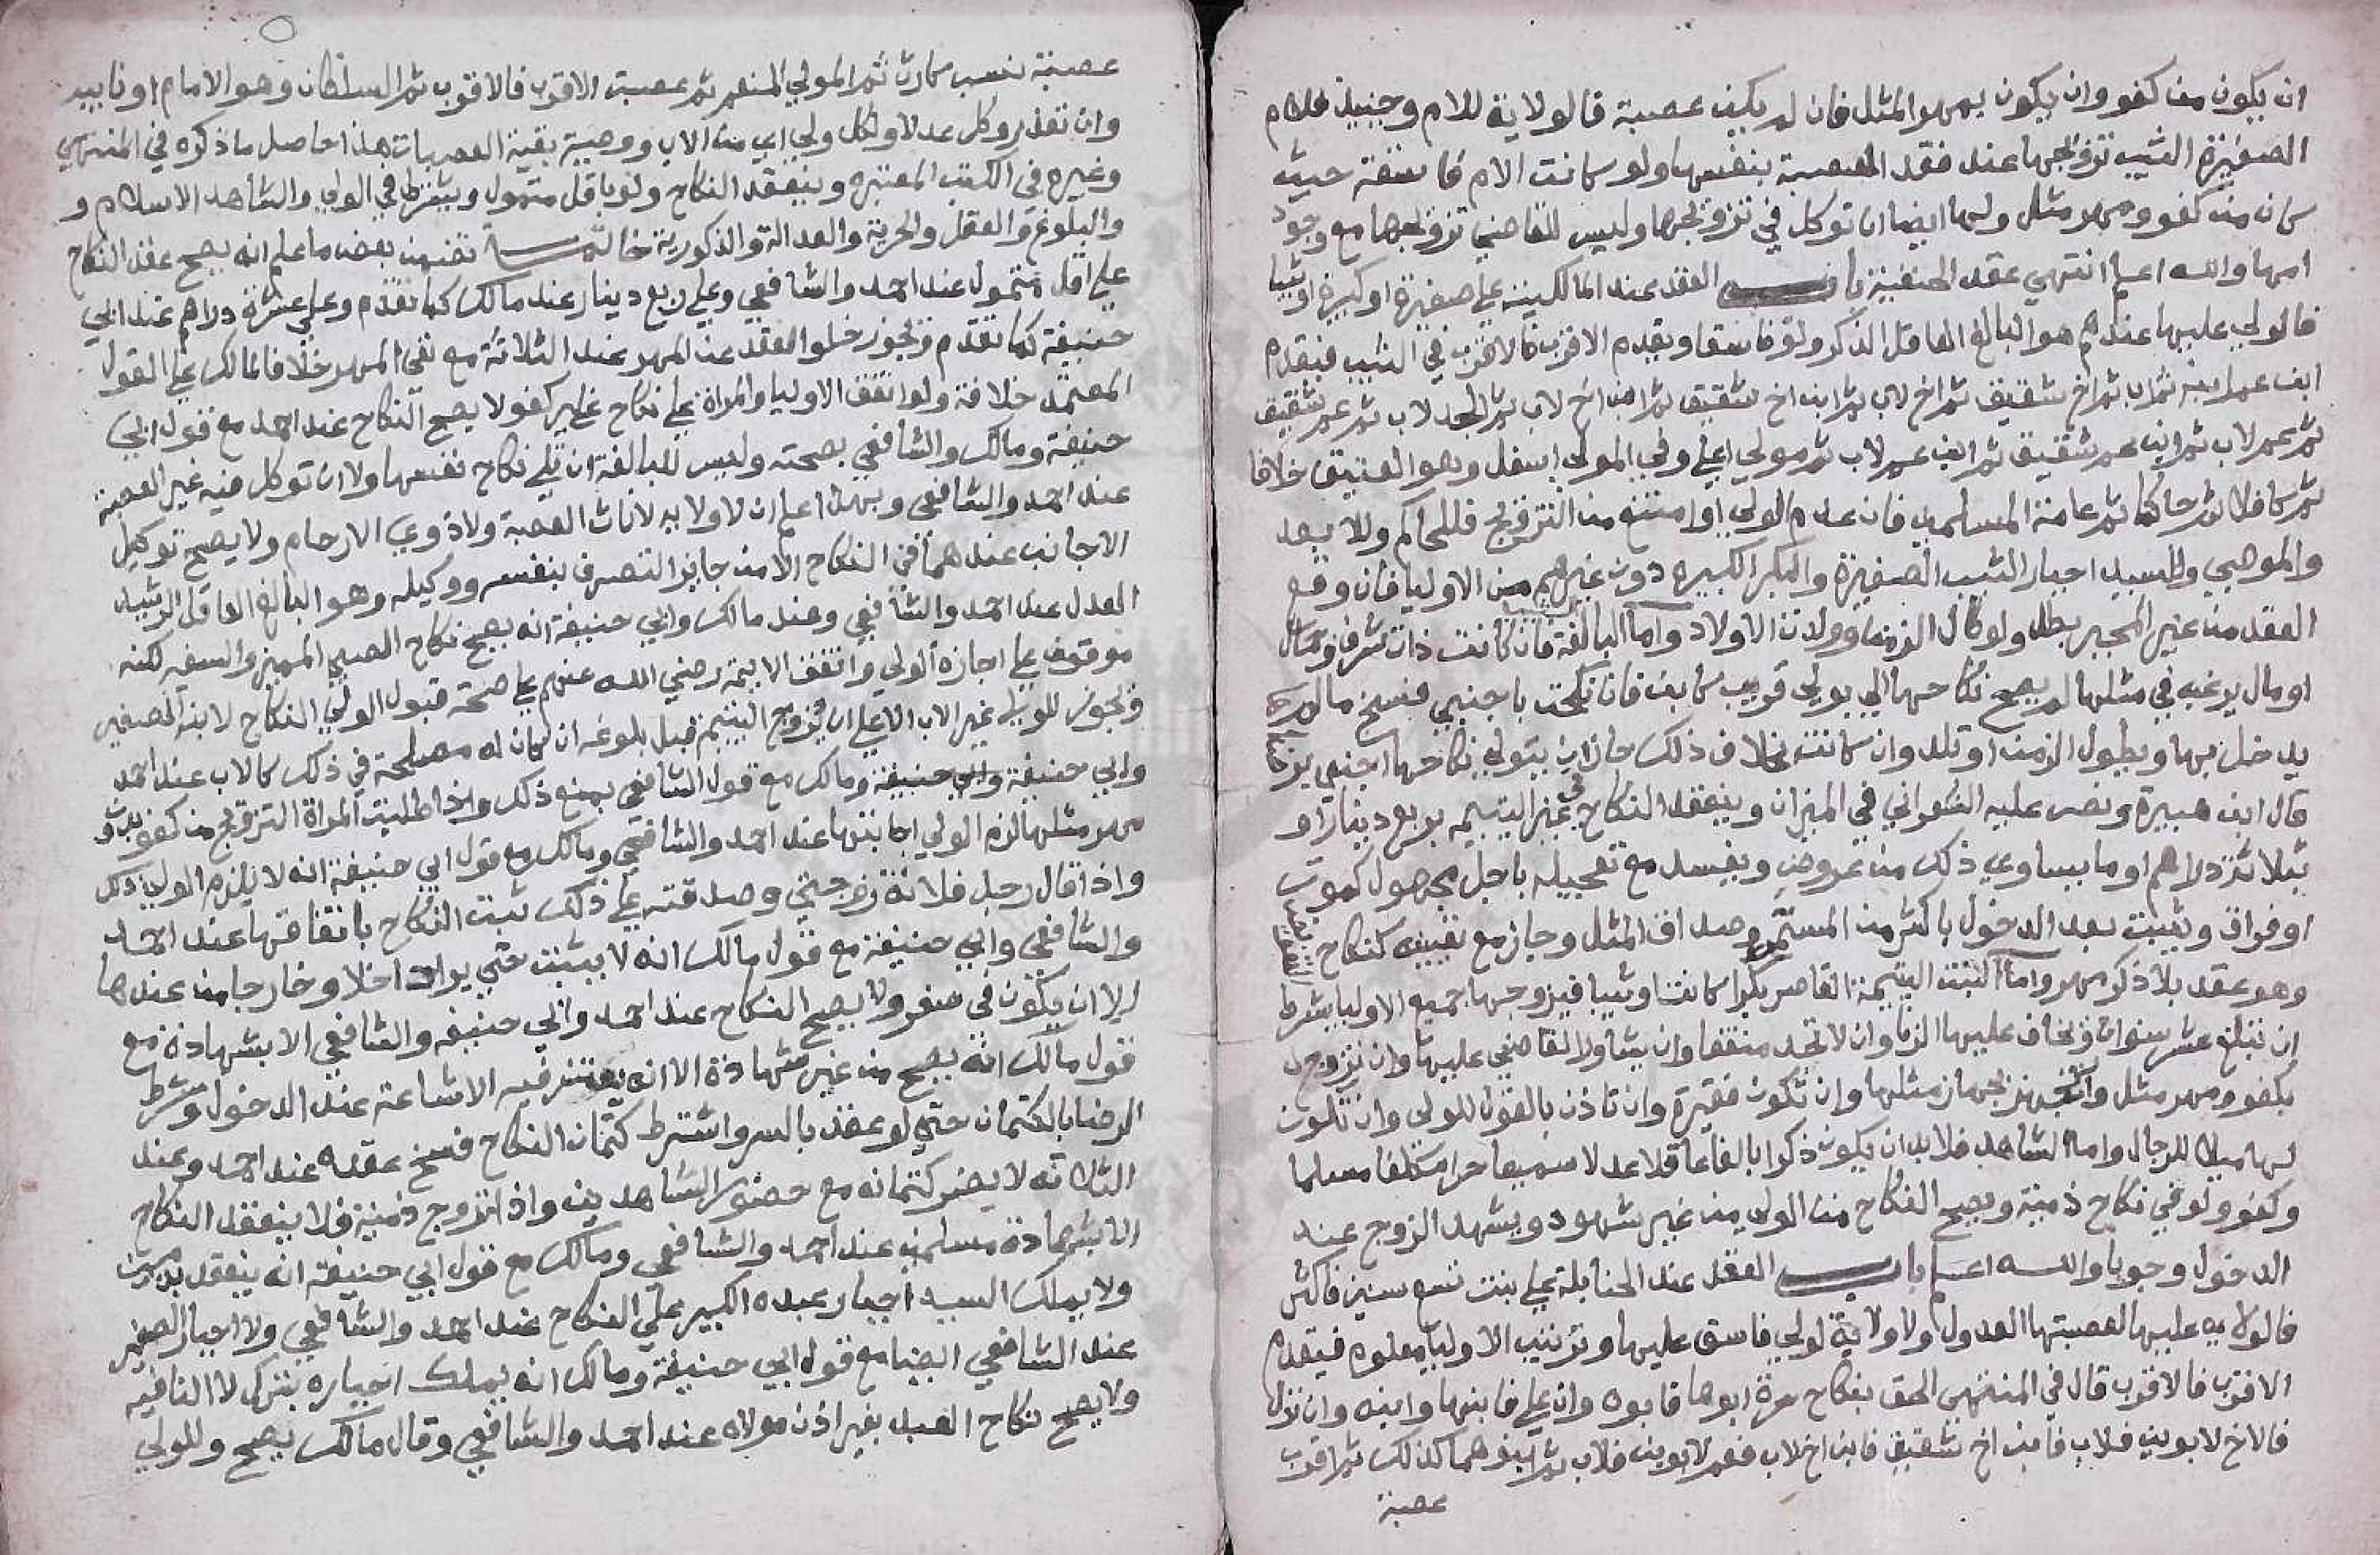 ان يكون من كفو وان يكون بمهر المثل فان لم يكن عصبة فالولاية للام وحينيذ فللام
الصغيرة الثيب تزويجها عند فقد العصبة بنفسها ولو كانت الام فاسقة حيث
كان من كفو ومهر مثل ولها ايضا ان توكل في تزويجها وليس للقاضي تزويجها مع وجود
امها والله اعلم انتهي عقد الحنفية باب العقد عند المالكية علي صغيرة او كبيرة او ثيبا
فالولي عليها عندهم هو البالغ العاقل الذكر ولو فاسقا ويقدم الاقرب فالاقرب في الثيب فيقدم
ابن فابنه ثم اب ثم اخ شقيق ثم اخ لاب ثم ابن اخ شقيق ثم ابن اخ لاب ثم الجد لاب ثم عم شقيق
ثم عم لاب ثم ابن عم شقيق ثم ابن عم لاب ثم مولي اعلي وفي المولي اسفل وهو العتيق خلافا
ثم كافلا ثم حاكما ثم عامة المسلمين فان عدم الولي او امتنع من التزويج فللحاكم وللاب بعد
والموصي والسيد اجبار الثيب الصغيرة والبكر الكبيره دون غيرهم من الاوليا فان وقع
العقد من غير المجبر بطل ولو طال الزمن وولدت الاولاد واما البالغة فان كانت ذات شرف وجمال
او مال يرغب في مثلها لم يصح نكاحها الي بولي قريب كابن فان نكحت باجنبي فسخ مالم
يدخل بها ويطول الزمن او تلد وان كانت بخلاف ذلك جاز ان يتولي نكاحها اجنبي
قال ابن هبيرة ونص عليه الشعراني في الميزان وينعقد النكاح في غير اليتيمه بربع دينار او
ثلاثة دراهم او ما يساوي ذلك من عروض ويفسد مع تعجيله باجل مجهول كموت
او فراق ويثبت بعد الدخول باكثر من المسمي وصداق المثل وجاز مع تعيينه كنكاح
وهو عقد بلا ذكر مهر واما البنت اليتيمة القاصر بكرا كانت او ثيبا فيزوجها جميع الاوليا بشرط
ان تبلغ عشر سنوات ويخاف عليها الزنا وان لا تجد منفقا وان يشاور القاضي عليها وان تزوج
بكفو ومهر مثل وان تجهز بجهاز مثلها وان تكون فقيرة وان تاذن بالقول للولي وان تكون
لها ميلا للرجال واما الشاهد فلا بد ان يكون ذكرا بالغا عاقلا عدلا سميعا حرا مكلفا مسلما
وكفو ولو في نكاح ذمية ويصح النكاح من الولي من غير شهود ويشهد الزوج عند
الدخول وجوبا والله اعلم باب العقد عند الحنابلة علي بنت تسع سنين فاكثر
فالولايه عليها لعصبتها العدول ولا ولاية لولي فاسق عليها وترتيب الاوليا معلوم فيقدم
الاقرب فالاقرب قال في المنتهي الحق بنكاح حرة ابوها فابوه وان علي فابنها وابنه وان نزل
فالاخ لابوين فلاب فابن اخ شقيق فابن اخ لاب فعم لابوين فلاب ثم بنوهما كذلك ثم اقرب
عصبة
عصبة بنسب كارث ثم المولي المنعم ثم عصبته الاقرب فالاقرب ثم السلطان وهو الامام او نايبه
وان تعذر وكل عدلا ولكل ولي اي من الاب ووصية بقية العصبات هذا حاصل ما ذكره في المنتهي
وغيره في الكتب المعتبره وينعقد النكاح ولو باقل متمول ويشترط في الولي والشاهد الاسلام و
والبلوغ والعقل والحرية والعدالة والذكورية خاتمة تضمن بعض ما علم انه يصح عقد النكاح
علي اقل متمول عند احمد والشافعي وعلي ربع دينار عند مالك كما تقدم وعلي عشرة دراهم عند ابي
حنيفة كما تقدم ويجوز خلو العقد عن المهر عند الثلاثة مع نفي المهر خلافا لمالك علي القول
المعتمد خلافه ولو اتفق الاوليا والمراة علي نكاح غير كفو لا يصح النكاح عند احمد مع قول ابي
حنيفة ومالك والشافعي بصحته وليس للبالغة ان تلي نكاح نفسها ولا ان توكل فيه غير العصبة
عند احمد والشافعي وبهذا اعلم ان لا ولايه لاناث العصبة ولا ذوي الارحام ولا يصح توكيل
الاجانب عندهما في النكاح الا من جايز التصرف بنفسه ووكيله وهو البالغ العاقل الرشيد
العدل عند احمد والشافعي وعند مالك وابي حنيفة انه يصح نكاح الصبي المميز والسفه لكنه
موقوف علي اجازة الولي واتفق الايمة رضي الله عنهم علي صحة قبول الولي النكاح لابنه الصغير
ويجوز للولي غير الاب الاعلي ان يزوج اليتيم قبل بلوغه ان كان له مصلحة في ذلك كالاب عند احمد
وابي حنيفة ومالك مع قول الشافعي بمنع ذلك واذا طلبت المراة التزويج من كفو بدون
مهر مثلها لزم الولي اجابتها عند احمد والشافعي ومالك مع قول ابي حنيفة انه لا يلزم الولي ذلك
واذا قال رجل فلانة زوجتي وصدقته علي ذلك ثبت النكاح باتفاقهما عند احمد
والشافعي وابي حنيفة مع قول مالك انه لا يثبت حتي يراه داخلا وخارجا من عندها
الا ان يكون في سفر ولا يصح النكاح عند احمد وابي حنيفه والشافعي الا بشهادة مع
قول مالك انه يصح من غير شهادة الا انه يعتبر فيه الاشاعة عند الدخول وشرط
الرضا بالكتمان حتي لو عقد بالسر واشترط كتمان النكاح فسخ عقده عند احمد وعند
الثلاثه لا يضر كتمانه مع حضور الشاهدين واذا تزوج ذمية فلا ينعقد النكاح
الا بشهادة مسلمين عند احمد والشافعي ومالك مع قول ابي حنيفة انه ينعقد بذميين
ولا يملك السيد اجبار عبده الكبير علي النكاح عند احمد والشافعي ولا اجبار الصغير
عند الشافعي ايضا مع قول ابي حنيفة ومالك انه يملك اجباره
ولا يصح نكاح العبد بغير اذن مولاه عند احمد والشافعي وقال مالك يصح وللولي